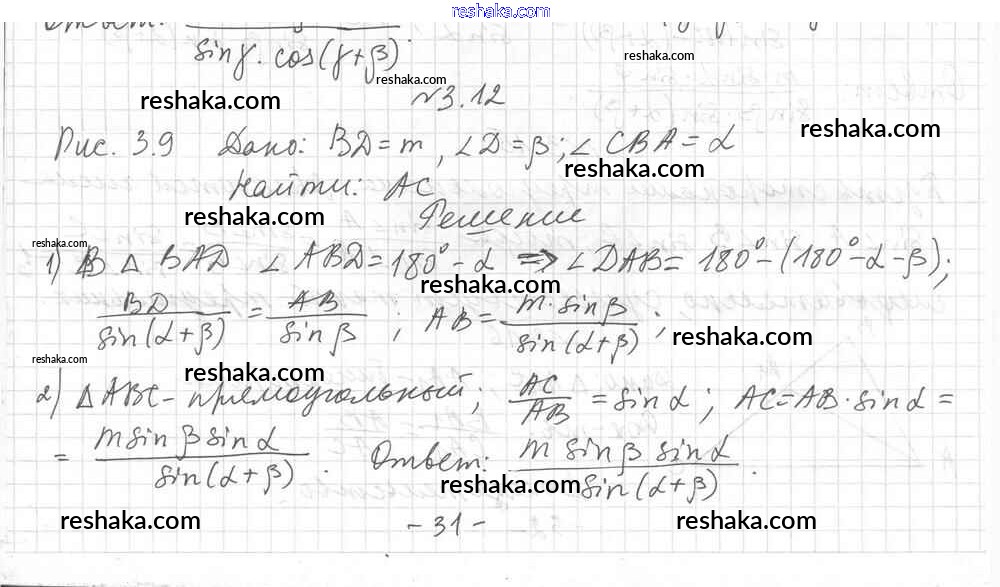 reshaka.com
Ответ:
sinγ · cos(γ+β).
reshaka.com
reshaka.com
reshaka.com
№3.12
reshaka.com
Рис. 3.9 Дано: BD = m, ∠D = β; ∠CBA = α
reshaka.com
Найти: AC
reshaka.com
Решение
reshaka.com
1) В △ BAD ∠ABD = 180° - α ⇒ ∠DAB = 180° - (180° - α - β);
reshaka.com
BD/sin(α+β) = AB/sinβ ; AB = m·sinβ/sin(α+β) ;
reshaka.com
reshaka.com
reshaka.com
2) △ABC - прямоугольный; AC/AB = sinα ; AC = AB·sinα =
= m sinβ sinα/sin(α+β) . Ответ: m sinβ sinα/sin(α+β) .
reshaka.com
reshaka.com
- 31 -
reshaka.com